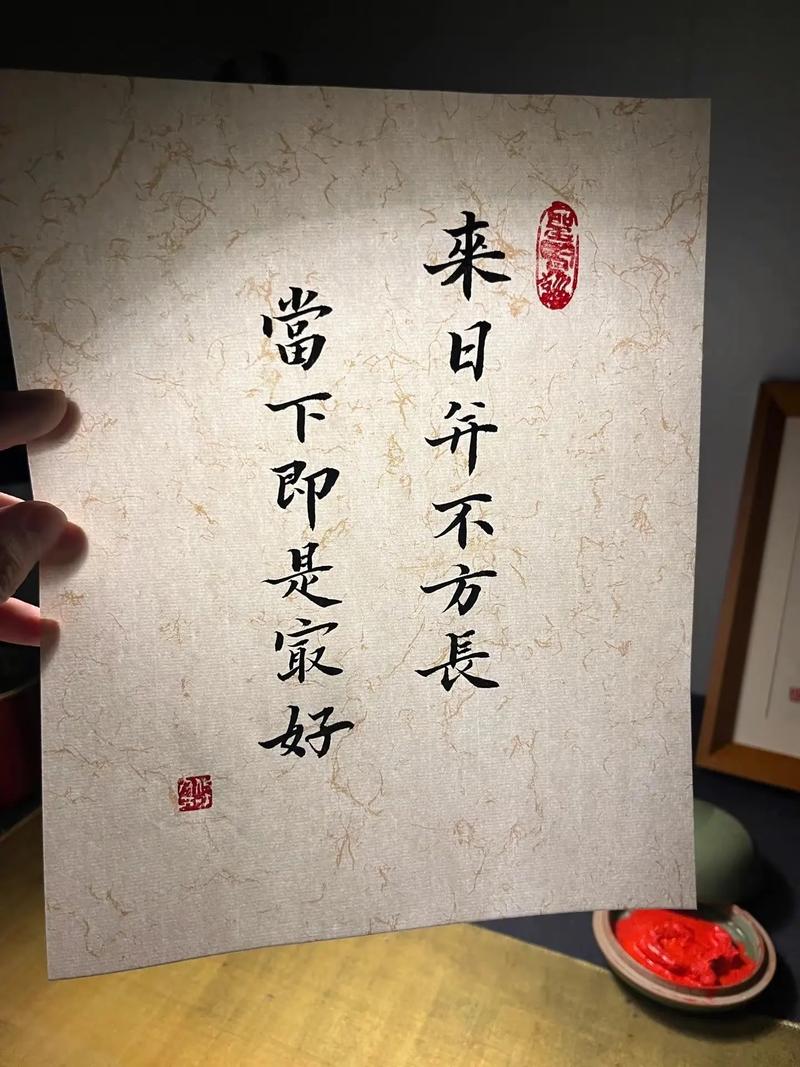 來日并不方長
當下即是寂好